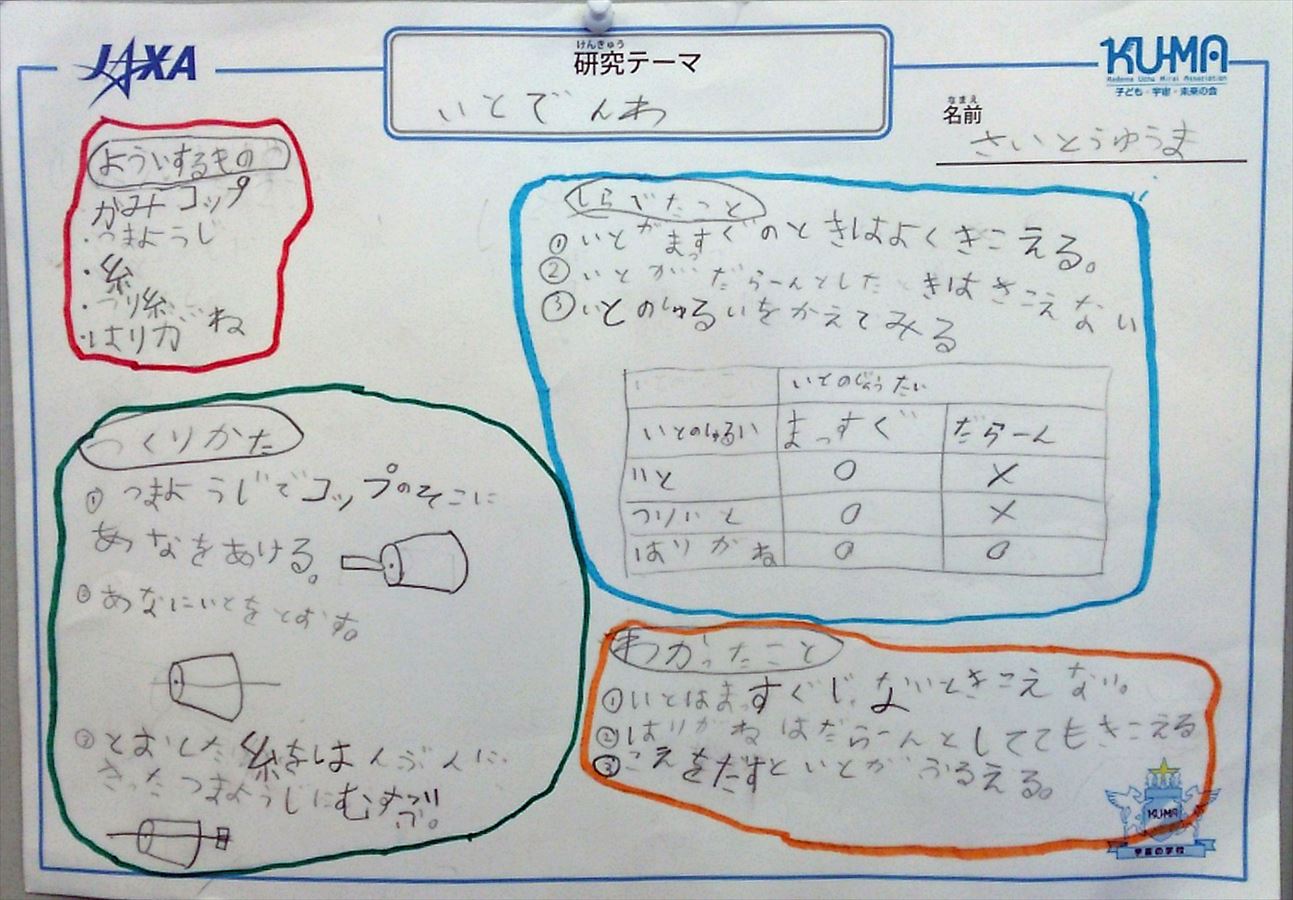 JAXA
けんきゅう
研究テーマ
いとでんわ
KU-MA
Kodomo Uchu Mirai Association
子ども・宇宙・未来の会
なまえ
名前
さいとうゆうま
よういするもの
かみコップ
・つまようじ
・糸
・つり糸
・はりがね
つくりかた
① つまようじでコップのそこに
あなをあける。
② あなにいとをとおす。
③ とおした糸をはんぶんに
きったつまようじにむすつけ
る。
しらべたこと
① いとがまっすぐのときはよくきこえる。
② いとがだらーんとしたときはきこえない
③ いとのしゅるいをかえてみる
いとのじょうたい
いとのしゅるい まっすぐ だらーん
いと ○ ×
つりいと ○ ×
はりがね ○ ○
わかったこと
① いとはまっすぐじゃないときこえない。
② はりがねはだらーんとしててもきこえる
③ こえをだすといとがふるえる。
KU-MA
宇宙の学校